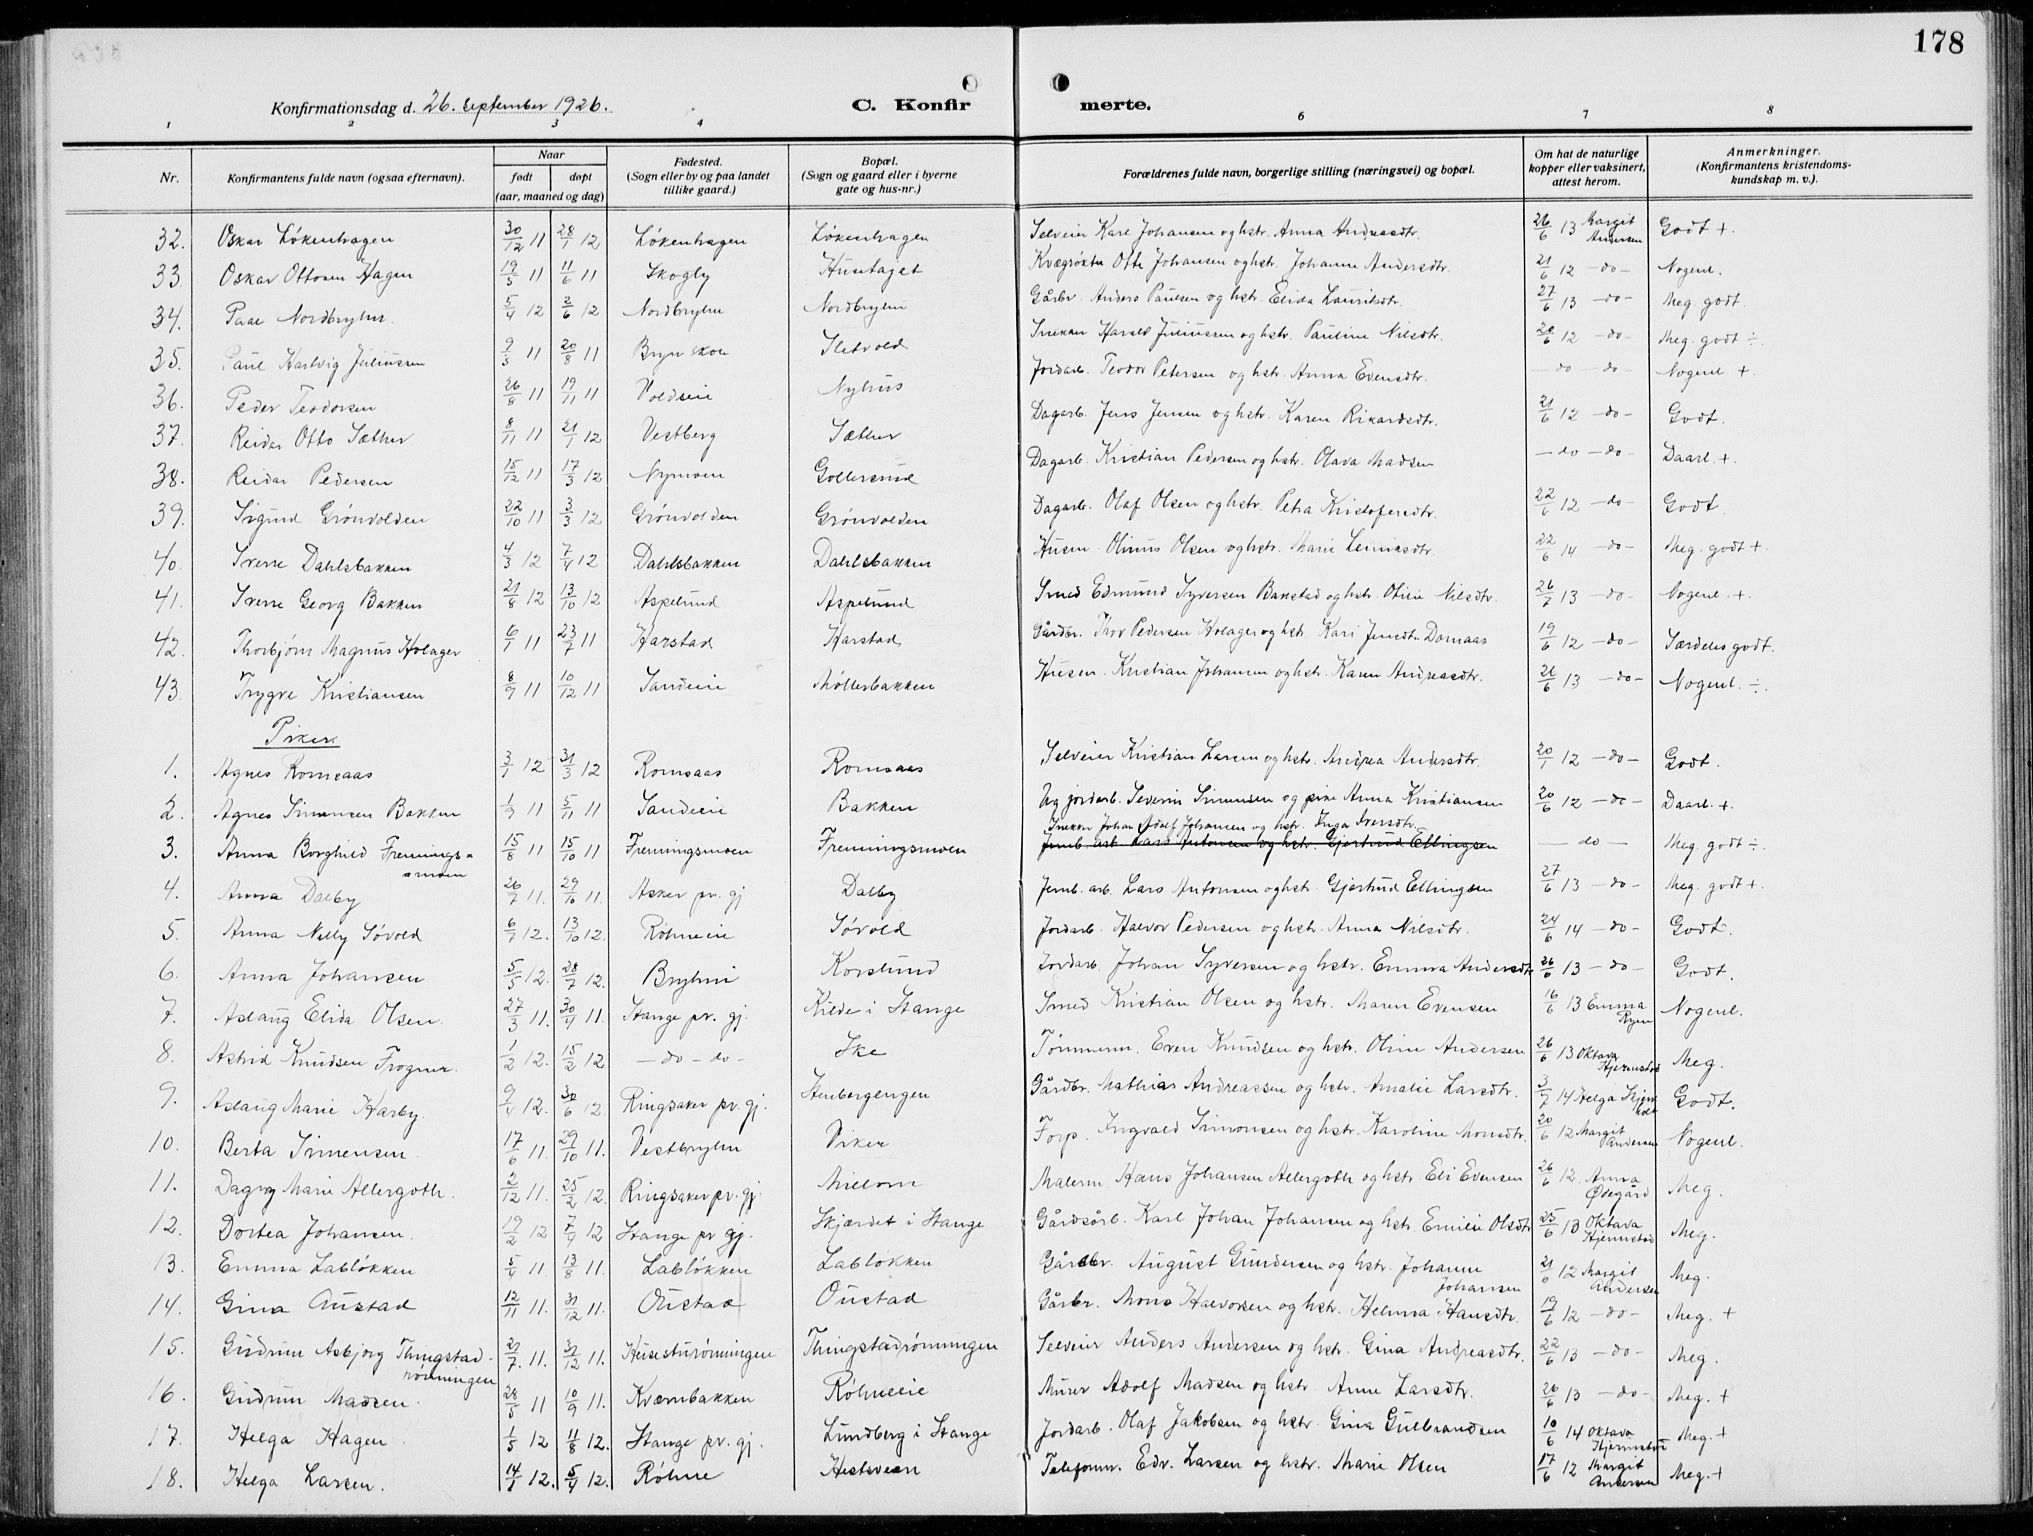 178
Konfirmationsdag d. 26. september 1926.
C. Konfir merte.
1 2 3 4 6 7 8
Nr. Konfirmantens fulde navn (ogsaa efternavn). Naar født døpt (aar, maaned og dag) Fødested. (Sogn eller by og paa landet tillike gaard.) Bopæl. (Sogn og gaard eller i byerne gate og hus-nr.) Forældrenes fulde navn, borgerlige stilling (næringsvei) og bopæl. Om hat de naturlige kopper eller vaksinert, attest herom. Anmerkninger. (Konfirmantens kristendomskundskap m. v.).
32. Oskar Løkenhagen 30/12 11 28/1 12 Løkenhagen Løkenhagen Selveier Karl Johansen og hstr. Anna Andreasdtr. 26/6 13 Margit Andersen Godt +.
33. Oskar Ottosen Hagen 19/5 11 11/6 11 Skogly Kvægrøkter Otto Johansen og hstr. Johanne Andersdtr. 21/6 12 - do - Nogenl.
34. Paal Nordbryhn. 5/4 12 2/6 12 Nordbryhn Nordbryhn Gårbr. Anders Paulsen og hstr. Elida Lauritsdtr. 27/6 13 - do - Meg. godt.
35. Paul Hartvig Juliussen 9/3 11 20/8 11 Bryn skole Sletvold Snekker Juliussen og hstr. Pauline Nilsdtr. 20/6 12 - do - Meg. godt ÷.
36. Peder Teodorsen 26/8 11 19/11 11 Voldseie Nyhus Jordarb. Teodor Petersen og hstr. Anna Evensdtr. - do - do - Nogenl +.
37. Reidar Otto Sæther 8/11 11 21/1 12 Vestberg Sæther Dagarb. Jens Jensen og hstr. Karen Rikardsdtr. 21/6 12 - do - Godt.
38. Reidar Pedersen 15/12 11 17/3 12 Nymoen Gollersrud Dagarb. Kristian Pedersen og hstr. Olava Madsen - do - do - Daarl. +.
39. Sigurd Grønvolden 22/10 11 3/3 12 Grønvolden Grønvolden Dagarb. Olaf Olsen og hstr. Petra Kristofersdtr. 22/6 12 - do - Godt.
40. Sverre Dahlsbakken 4/3 12 7/4 12 Dahlsbakken Dahlsbakken Husm. Olinus Olsen og hstr. Marie 22/6 14 - do - Meg. godt +.
41. Sverre Georg Bakken 21/8 12 13/10 12 Aspelund Aspelund Smed Edmund Syversen Bakstad og hstr. Oline Nilsdtr. 26/7 13 - do - Nogenl. +.
42. Thorbjørn Magnus Holager 6/1 11 23/7 11 Harstad Harstad Gårdbr. Thor Pedersen Holager og hstr. Kari Jensdtr. Domaas 19/6 12 - do - Særdeles godt.
43. Trygve Kristiansen 8/9 11 10/12 11 Sandeie Møllerbakken Husm. Kristian Johansen og hstr. Karen Andreasdtr. 26/6 13 - do - Nogenl. ÷.
Piker
1. Agnes Romsaas 3/1 12 31/3 12 Romsaas Romsaas Selveier Kristian Larsen og hstr. Andrea Andersdtr. 20/1 12 - do - Godt.
2. Agnes Simensen Bakken 1/9 11 5/11 11 Sandeie Bakken Ug. jordarb. Severin Simensen og pike Anna Kristiansen 20/6 12 - do - Daarl. +.
Snekker Johan Adolf Johansen og hstr. Inga Iversdtr.
3. Anna Borghild Frenningsmoen 15/8 11 15/10 11 Frenningsmoen Frenningsmoen Jernb. arb. Lars Antonsen og hstr. Gjertrud Ellingsen - do - Meg. godt ÷.
4. Anna Dalby 26/7 11. 29/10 11. Asker pr. gj Dalby Jernb. arb. Lars Antonsen og hstr. Gjertrud Ellingsen 27/6 13 - do - Meg. godt +.
5. Anna Nelly Søvold 6/7 12. 13/10 12. Røhneeie Søvold Jordarb. Halvor Pedersen og hstr. Anna Nilsdtr. 24/6 14 - do - Godt.
6. Anna Johansen 5/5 12. 28/7 12. Bryhni Korslund Jordarb. Johan Syversen og hstr. Emma Andersdtr 26/6 13 - do - Godt.
7. Aslaug Elida Olsen. 27/3 11. 30/4 11. Stange pr. gj. Kilde i Stange Smed Kristian Olsen og hstr. Maren Evensen 16/6 13 Emma Ryen Nogenl.
8. Astrid Knudsen Frogner. 1/2 12. 15/2 12 - do - do - Ske Tømmerm. Even Knudsen og hstr. Oline Andersen 26/6 13 Oktava Hjernstad Meg.
9. Aslaug Marie Harby. 9/4 12. 30/6 12. Ringsaker pr. gj. Stenbergengen Gårdbr. Mathias Andreassen og hstr. Amalie Larsdtr. 3/7 14 Helga Godt.
10. Berta Simensen. 17/6 11. 29/10 11. Vestbryhn Viker Forp. Ingvald Simonsen og hstr. Karoline Monsdtr. 20/6 12 Margit Andersen Nogenl.
11. Dagny Marie Allergoth. 2/12 11. 25/2 12. Ringsaker pr. gj. Mielom Malerm. Hans Johansen Allergoth og hstr. Eli Evensen 26/6 12. Anna Ødegård Meg.
12. Dortea Johansen. 19/2 12 7/4 12 Stange pr gj. Skjærdet i Stange Gårdsarb. Karl Johan Johansen og hstr. Emilie Olsdtr 25/6 13 Oktava Hjernstad Meg.
13. Emma Labløkken 5/4 11. 13/8 11. Labløkken Labløkken Gårdbr. August Gundersen og hstr. Johanne Johansen 21/6 12 Margit Andersen Meg.
14. Gina Austad 12/11 11. 31/12 11. Oustad Oustad Gårbr. Mons Halvorsen og hstr. Helma Hansdtr. 19/6 12 - do - Meg. +
15. Gudrun Asbjørg Thingstadrønningen 21/7. 11. 31/12 11. Thingstadrønningen Selveier Anders Andersen og hstr. Gina Andreasdtr. 22/6 13 - do - Meg.
16. Gudrun Madsen. 28/5 11 10/9 11. Kværnbakken Røhneeie Murer Adolf Madsen og hstr. Anne Larsdtr. 26/6 13 - do - Meg. +
17. Helga Hagen. 1/5 12 11/8 12. Stange pr. gj. Lundberg i Stange Jordarb. Olaf Jakobsen og hstr. Gina Gulbrandsen 10/6 14 Oktava Hjernstad Meg. +
18. Helga Larsen. 14/1 12. 5/4 12. Røhne Hestsveen Telefonm. Edv. Larsen og hstr. Marie Olsen 17/6 12 Margit Andersen Meg. +